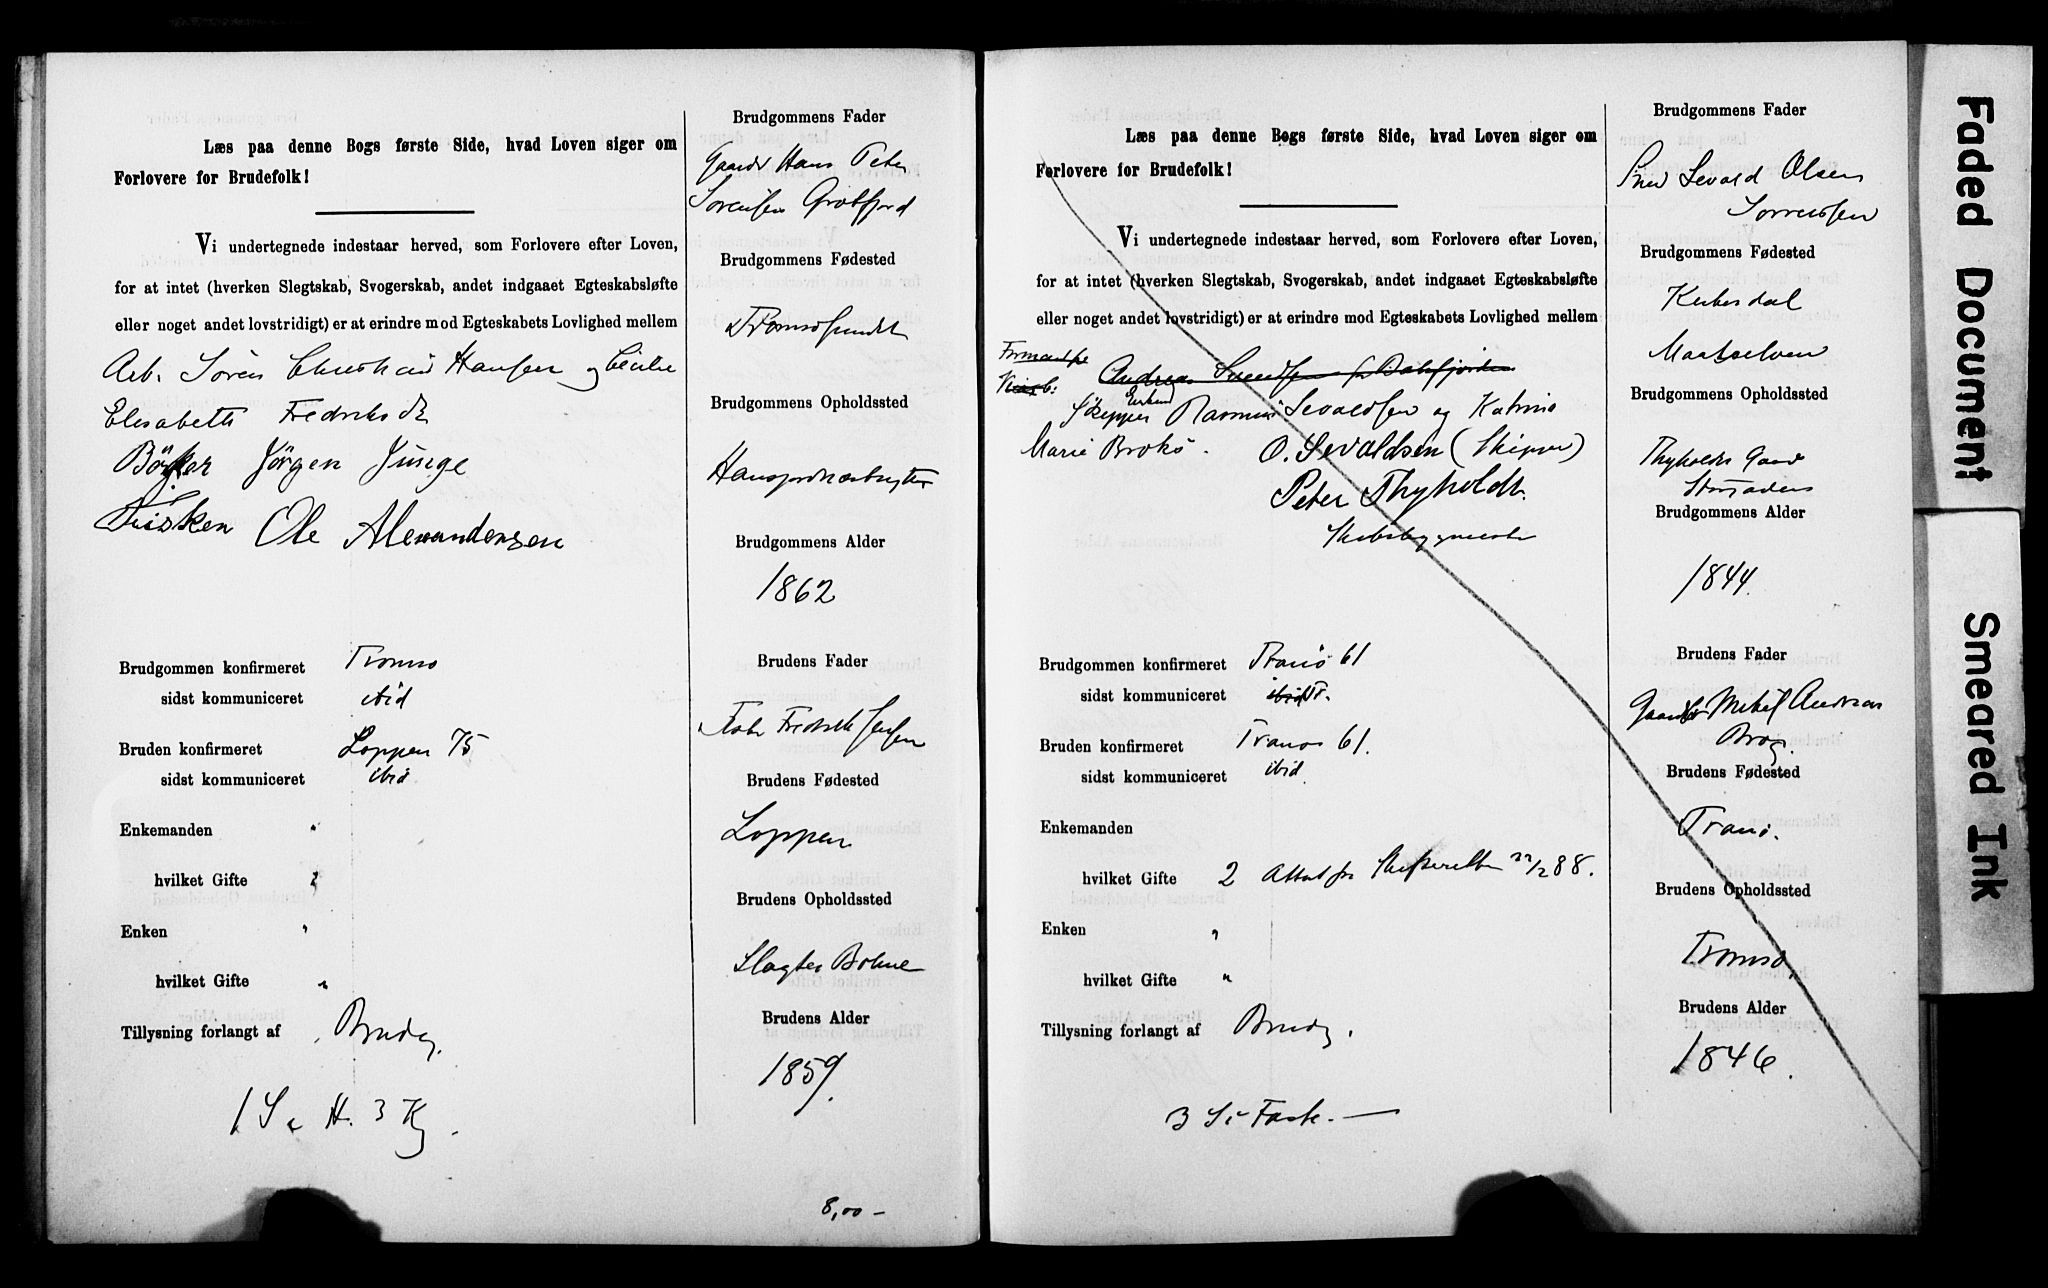 Læs paa denne Bogs første Side, hvad Loven siger om
Forlovere for Brudefolk!
Vi undertegnede indestaar herved, som Forlovere efter Loven,
for at intet (hverken Slegtskab, Svogerskab, andet indgaaet Egteskabsløfte
eller noget andet lovstridigt) er at erindre mod Egteskabets Lovlighed mellem
Arb. Sören Christian Hansen og
Elisabeth Fredriksdt
Jørgen Junge
Ole Alexandersen
Brudgommen konfirmeret Tromsø
sidst kommuniceret ibid
Bruden konfirmeret Loppen 75
sidst kommuniceret ibid
Enkemanden "
hvilket Gifte
Enken "
hvilket Gifte "
Tillysning forlangt af Brudg.
1 S. e. H. 3 K.
Brudgommens Fader
Gaardb Hans Peter
Sørensen Grøtfjord
Brudgommens Fødested
Tromsøsundet
Brudgommens Opholdssted
Brudgommens Alder
1862
Brudens Fader
Fredrik Jensen
Brudens Fødested
Loppen
Brudens Opholdssted
Slagter
Brudens Alder
1859.
8,00 –
Læs paa denne Bogs første Side, hvad Loven siger om
Forlovere for Brudefolk!
Vi undertegnede indestaar herved, som Forlovere efter Loven,
for at intet (hverken Slegtskab, Svogerskab, andet indgaaet Egteskabsløfte
eller noget andet lovstridigt) er at erindre mod Egteskabets Lovlighed mellem
Andreas
Rasmus Sevaldsen og Katrina
Marie
O. Sevaldsen (Skipper)
Peter Thyholdt.
Skibsbygmester
Brudgommen konfirmeret Tranø 61
sidst kommuniceret ibid Tr.
Bruden konfirmeret Tranø 61.
sidst kommuniceret ibid
Enkemanden
hvilket Gifte 2 Attest fra Skifteretten 22/2 88.
Enken "
hvilket Gifte "
Tillysning forlangt af Brudg.
3 S. i Faste. —
Brudgommens Fader
Sevald Olsen
Brudgommens Fødested
Kirkesdal
Maalselven
Brudgommens Opholdssted
Thyholdts Gaard
Brudgommens Alder
1844.
Brudens Fader
Mikal Andreas
Brudens Fødested
Tranø.
Brudens Opholdssted
Tromsø
Brudens Alder
1846.
Faded Document
Smeared Ink